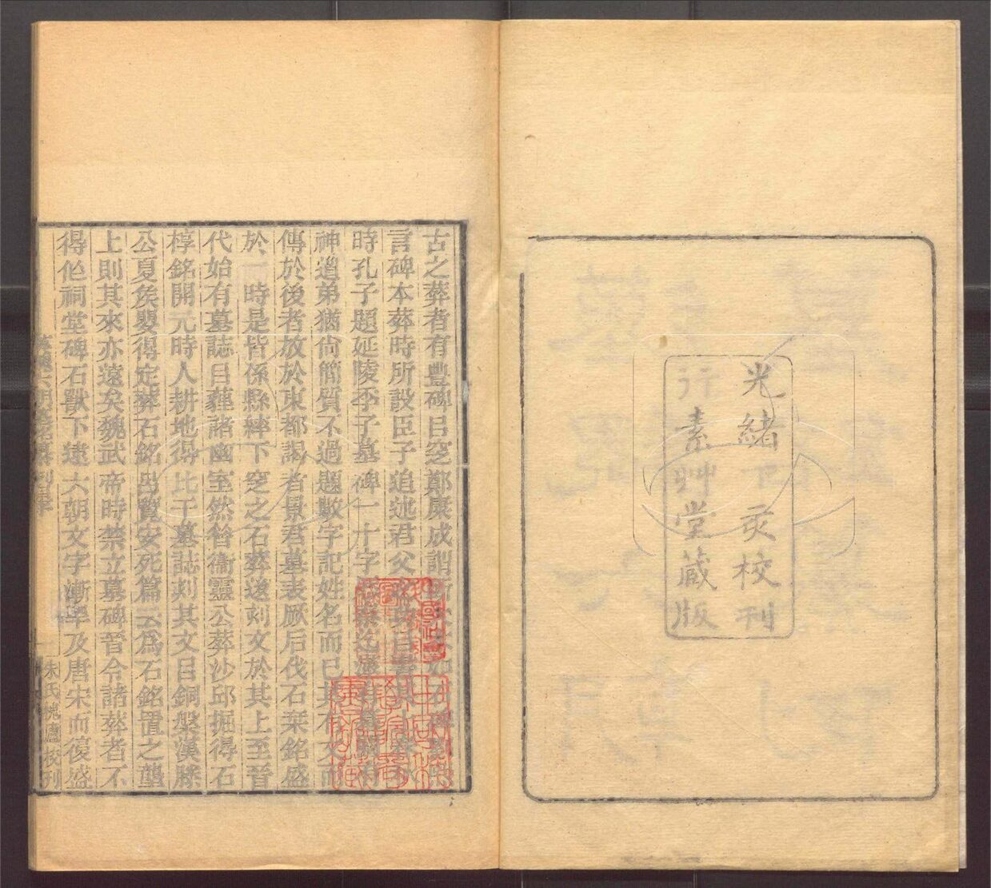 光緒丁亥校刊
行素艸堂藏版
古之葬者有豊碑曰窆鄭康成謂
言碑本葬時所設臣子追述君父
時孔子題延陵季子墓碑一十字
神道弟猶尙簡質不過題數字記姓名而已其
傳於後者放於東都謁者景君墓表厥后伐石棊銘盛
於一時是皆係縣繂下窆之石葬遂刻文於其上至晉
代始有墓誌目薶諸幽室然昝衞靈公葬沙邱掘得石
椁銘開元時人耕地得比干墓誌刻其文曰銅槃漢滕
公夏矦嬰得定葬石銘呂覽安死篇云爲石銘置之壟
上則其來亦遠矣魏武帝時禁立墓碑晉令諸葬者不
得他祠堂碑石獸下逮六朝文字漸孳及唐宋而復盛
朱氏槐廬校刊